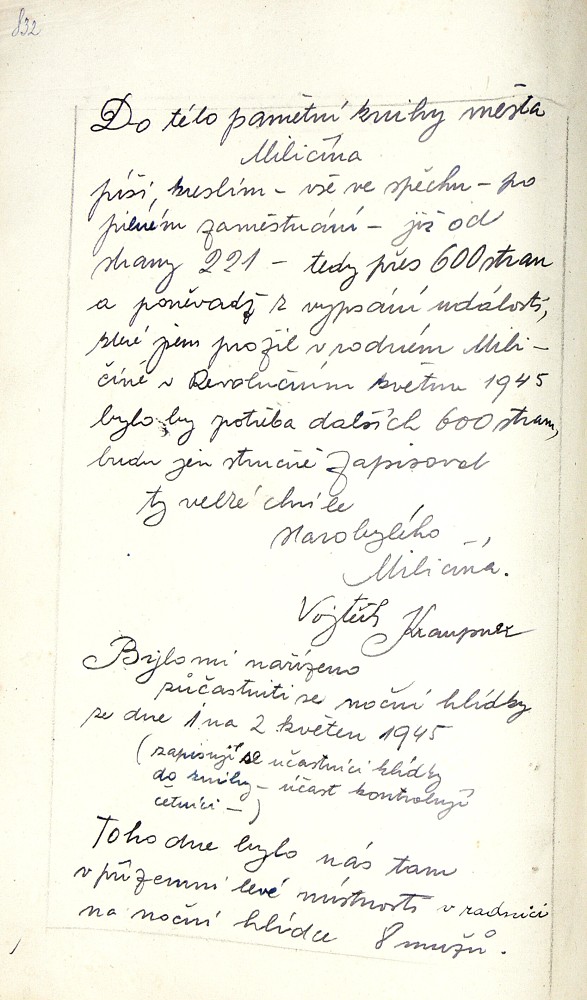 832
Do této pamětní knihy města
Miličína
píši, kreslím – vše ve spěchu – po
pilném zaměstnání – již od
strany 221 – tedy přes 600 stran
a poněvadž k vypsání událostí,
které jsem prožil v rodném Mili–
číně v Revolučním květnu 1945
bylo by potřeba dalších 600 stran,
budu jen stručně zapisovat
ty velké chvíle
starobylého
Miličína.
Vojtěch Kraupner
Bylo mi nařízeno
súčastniti se noční hlídky
ze dne 1 na 2 květen 1945
(zapisují se účastníci hlídky
do knihy – účast kontrolují
četníci –)
Toho dne bylo nás tam
v přízemní levé místnosti v radnici
na noční hlídce 8 mužů.